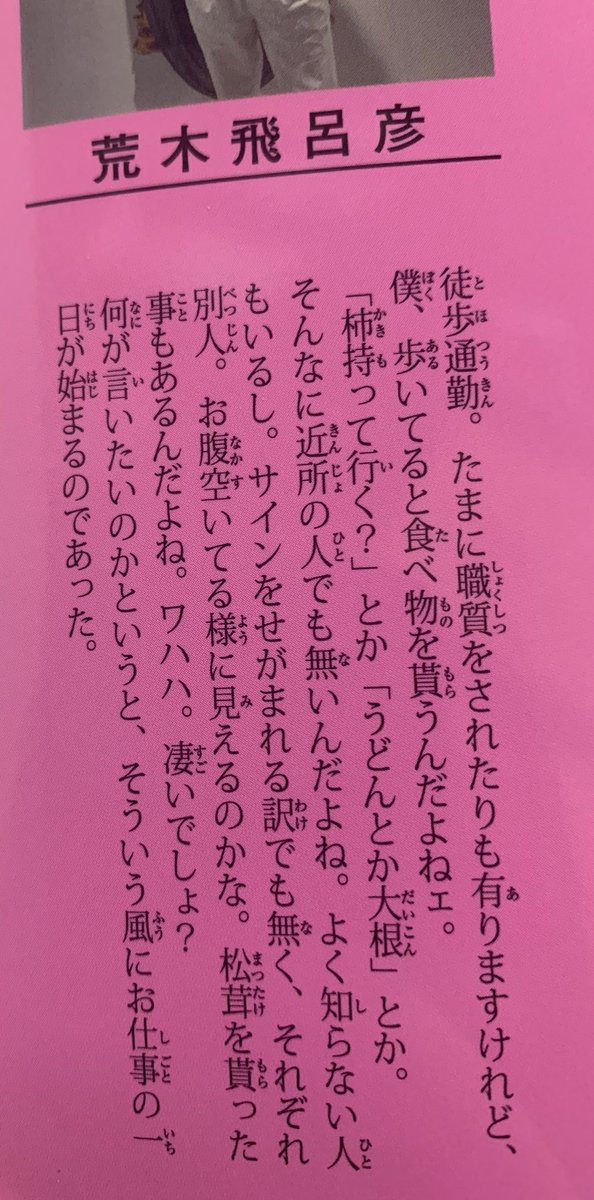 荒木飛呂彦
徒歩通勤。たまに職質をされたりも有りますけれど、
僕、歩いてると食べ物を貰うんだよねェ。
「柿持って行く?」とか「うどんとか大根」とか。
そんなに近所の人でも無いんだよね。よく知らない人
もいるし。サインをせがまれる訳でも無く、それぞれ
別人。お腹空いてる様に見えるのかな。松茸を貰った
事もあるんだよね。ワハハ。凄いでしょ?
何が言いたいのかというと、そういう風にお仕事の一
日が始まるのであった。